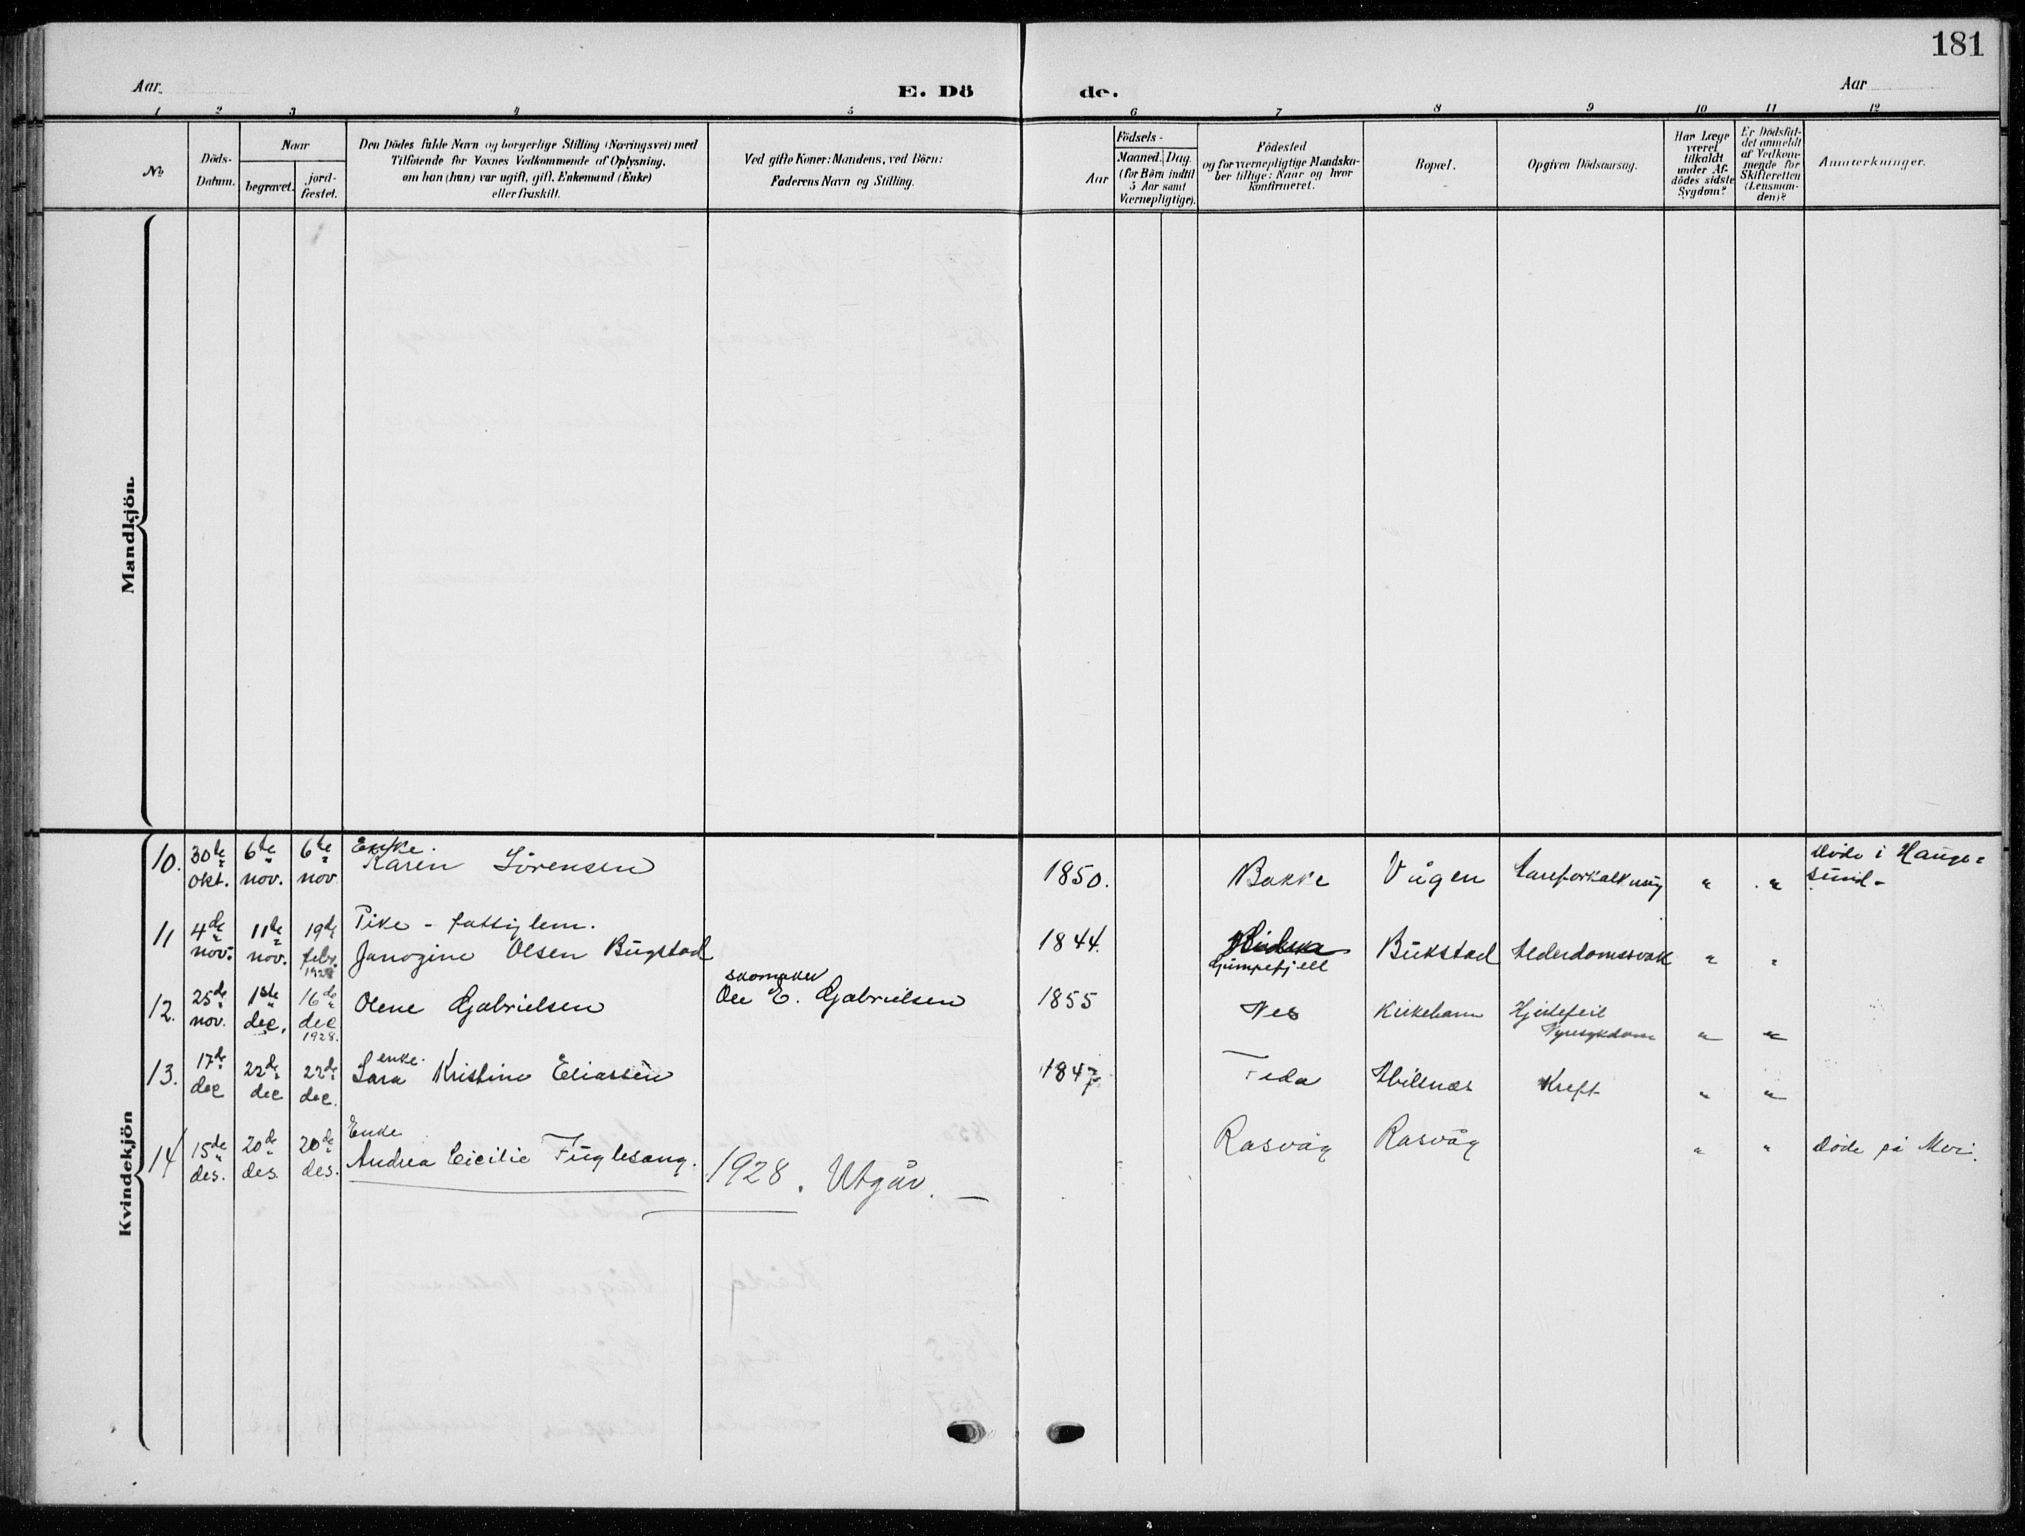 181
Aar.
E. Dö
de.
Aar
1 2 3 4 5 6 7 8 9 10 11 12
No
Döds-
Datum.
Naar
begravet.
jord-
fæstet.
Den Dödes fulde Navn og borgerlige Stilling (Næringsvei) med
Tilföiende for Voxnes Vedkommende af Oplysning,
om han (hun) var ugift, gift, Enkemand (Enke)
eller fraskilt.
Ved gifte Koner: Mandens, ved Börn:
Faderens Navn og Stilling.
Aar
Födsels-
Maaned. Dag.
(for Börn indtil
5 Aar samt
Værnepligtige).
Födested
og for værnepligtige Mandska-
ber tillige: Naar og hvor
konfirmeret.
Bopæl.
Opgiven Dödsaarsag.
Har Læge
været
tilkaldt
under Af-
dödes sidste
Sygdom?
Er Dödsfal-
det anmeldt
af Vedkom-
mende for
Skifteretten
(Lensman-
den)?
Anmærkninger.
Mandkjön.
Kvindekjön
10. 30te okt. 6te nov. 6te nov. Enke. Karen Sörensen 1850. Bakke Vågen Aareforkalkning " " Döde i Hauge=
sund -
11 4de nov. 11te nov. 19de febr. 1928 Pike - fattiglem.
Janogine Olsen Bugstad 1844. Gumpefjell Bukstad Alderdomssvak " "
12. 25de nov. 1ste dec. 16de dec 1928. Olene Gabrielsen skomaker
Ole E. Gabrielsen 1855 Nes Kirkehavn Hjertefeil
Nyresykdom " "
13. 17de dec 22de dec 22de dec. enke.
Sara Kristine Eliassen 1847 Feda Abelsnæs Kreft " "
14 15de des. 20de des. 20de des. Enke
Andrea Cicilie Fuglesang. Rasvåg Rasvåg " " Döde på Moi.
1928. Utgår. —